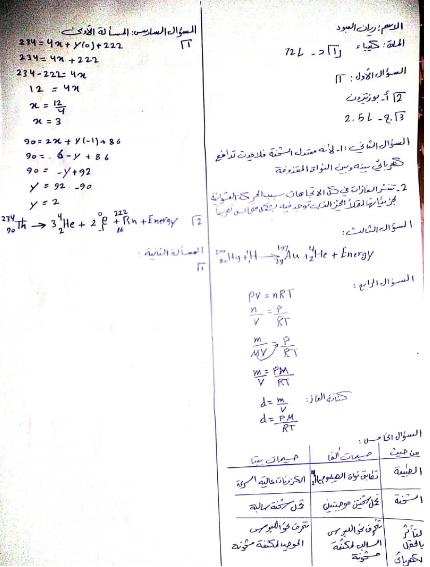 الاسم: ريان العبود
المادة: كيمياء
السؤال الأول:
1 د- 72L
2 أ- بوزيترون
3 ج- 2.5L
السؤال الثاني: 1- لأنه معتدل الشحنة فلا يوجد تدافع
كهربائي بينه وبين النواة المقذوفة
2- تنتشر الغازات في كل الاتجاهات بسبب الحركة العشوائية
السؤال الثالث:
Hg + H → Au + ⁴₂He + Energy
السؤال الرابع:
PV = nRT
n/V = P/RT
m/MV = P/RT
m/V = PM/RT
كثافة الغاز: d = m/V
d = PM/RT
السؤال الخامس:
من حيث | جسيمات ألفا | جسيمات بيتا
الطبيعة | تطابق نواة الهيليوم | إلكترونات عالية السرعة
الشحنة | تحمل شحنتين موجبتين | تحمل شحنة سالبة
التأثر بالحقل الكهربائي | تنحرف نحو اللبوس السالب لمكثفة مشحونة | تنحرف نحو اللبوس الموجب لمكثفة مشحونة
السؤال السادس: المسألة الأولى
1
234 = 4x + y(0) + 222
234 = 4x + 222
234 - 222 = 4x
12 = 4x
x = 12/4
x = 3
90 = 2x + y(-1) + 86
90 = 6 - y + 86
90 = -y + 92
y = 92 - 90
y = 2
2 ²³⁴₉₀Th → 3 ⁴₂He + 2 ⁰β + ²²²₈₆Rn + Energy
المسألة الثانية:
1